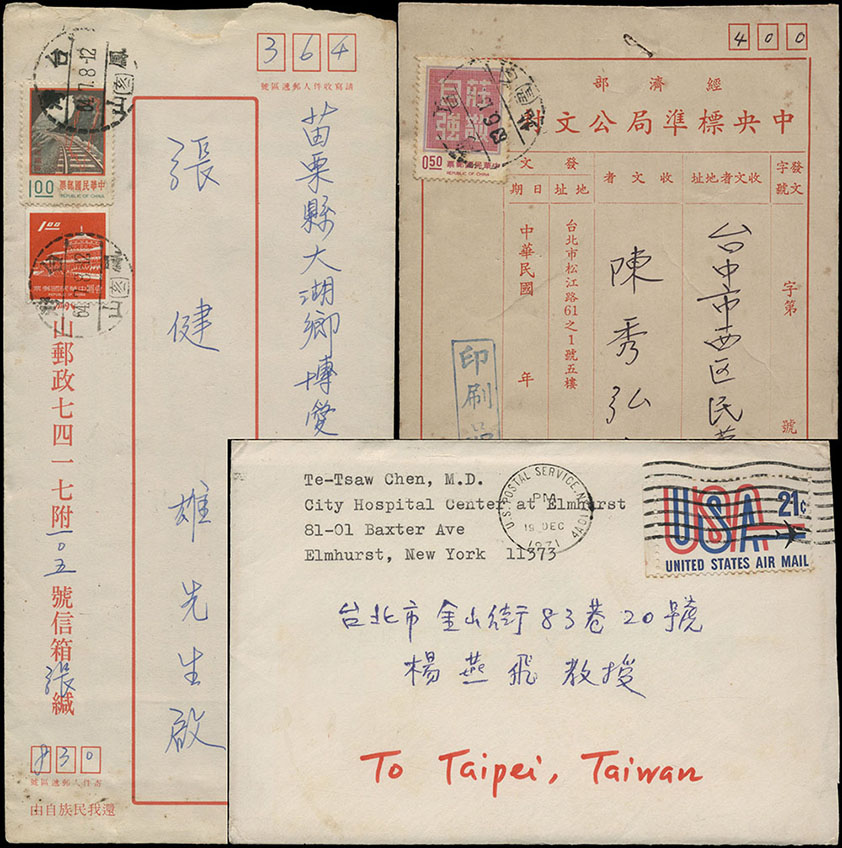 364
請寫收件人郵遞區號
苗栗縣大湖鄉博愛
張健雄先生啟
台
鳳山
(亥)
1.00
中華民國郵票
REPUBLIC OF CHINA
1.00
山郵政七四一七附一〇五號信箱張緘
830
寄件人郵遞區號
還我民族自由
400
經濟部
中央標準局公文
莊敬自強
0.50
中華民國郵票
REPUBLIC OF CHINA
發文字號
字第 號
收文者地址
台中市西区民
收文者
陳秀弘
發文地址
台北市松江路61之1號五樓
發文日期
中華民國 年
印刷品
Te-Tsaw Chen, M.D.
City Hospital Center at Elmhurst
81-01 Baxter Ave
Elmhurst, New York 11373
U.S. POSTAL SERVICE NY
PM
19 DEC
1971
USA 21c
UNITED STATES AIR MAIL
台北市金山街83巷20號
楊燕飛教授
To Taipei, Taiwan